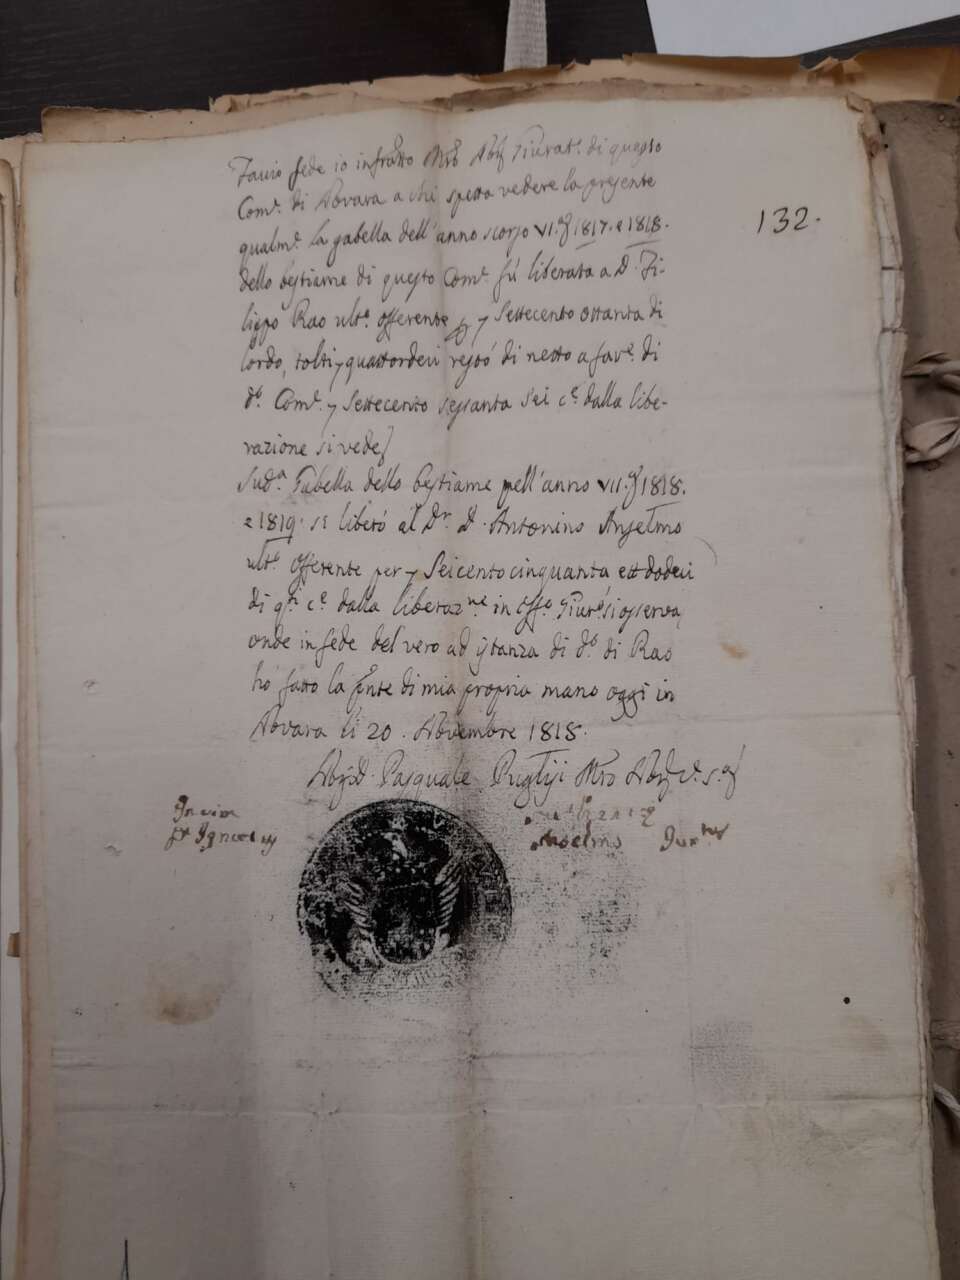 Faccio fede io infratto Mro Notr Giurat.o di questo
Com.e di Novara a chi spetta vedere la presente
qualm.e la gabella dell'anno scorso VI. 1817. e 1818.
dello bestiame di questo Com.e fù liberata a D. Fi-
lippo Rao ult.o offerente Settecento ottanta di
lordo, tolti quattordeci restò di netto a fav.e di
d.o Com.e Settecento sessanta sei c.e dalla libe-
razione si vede
Sud.a Gabella dello bestiame pell'anno VII. 1818.
e 1819. si liberò al Dr. D. Antonino Anselmo
ult.o offerente per Seicento cinquanta ett dodeci
di q.di c.e dalla liberaz.ne in Giur.o si osserva
onde in fede del vero ad istanza di d.o di Rao
hò fatto la pnte di mia propria mano oggi in
Novara li 20. Novembre 1818.
Pasquale Puglisi Mro
132.
Anselmo